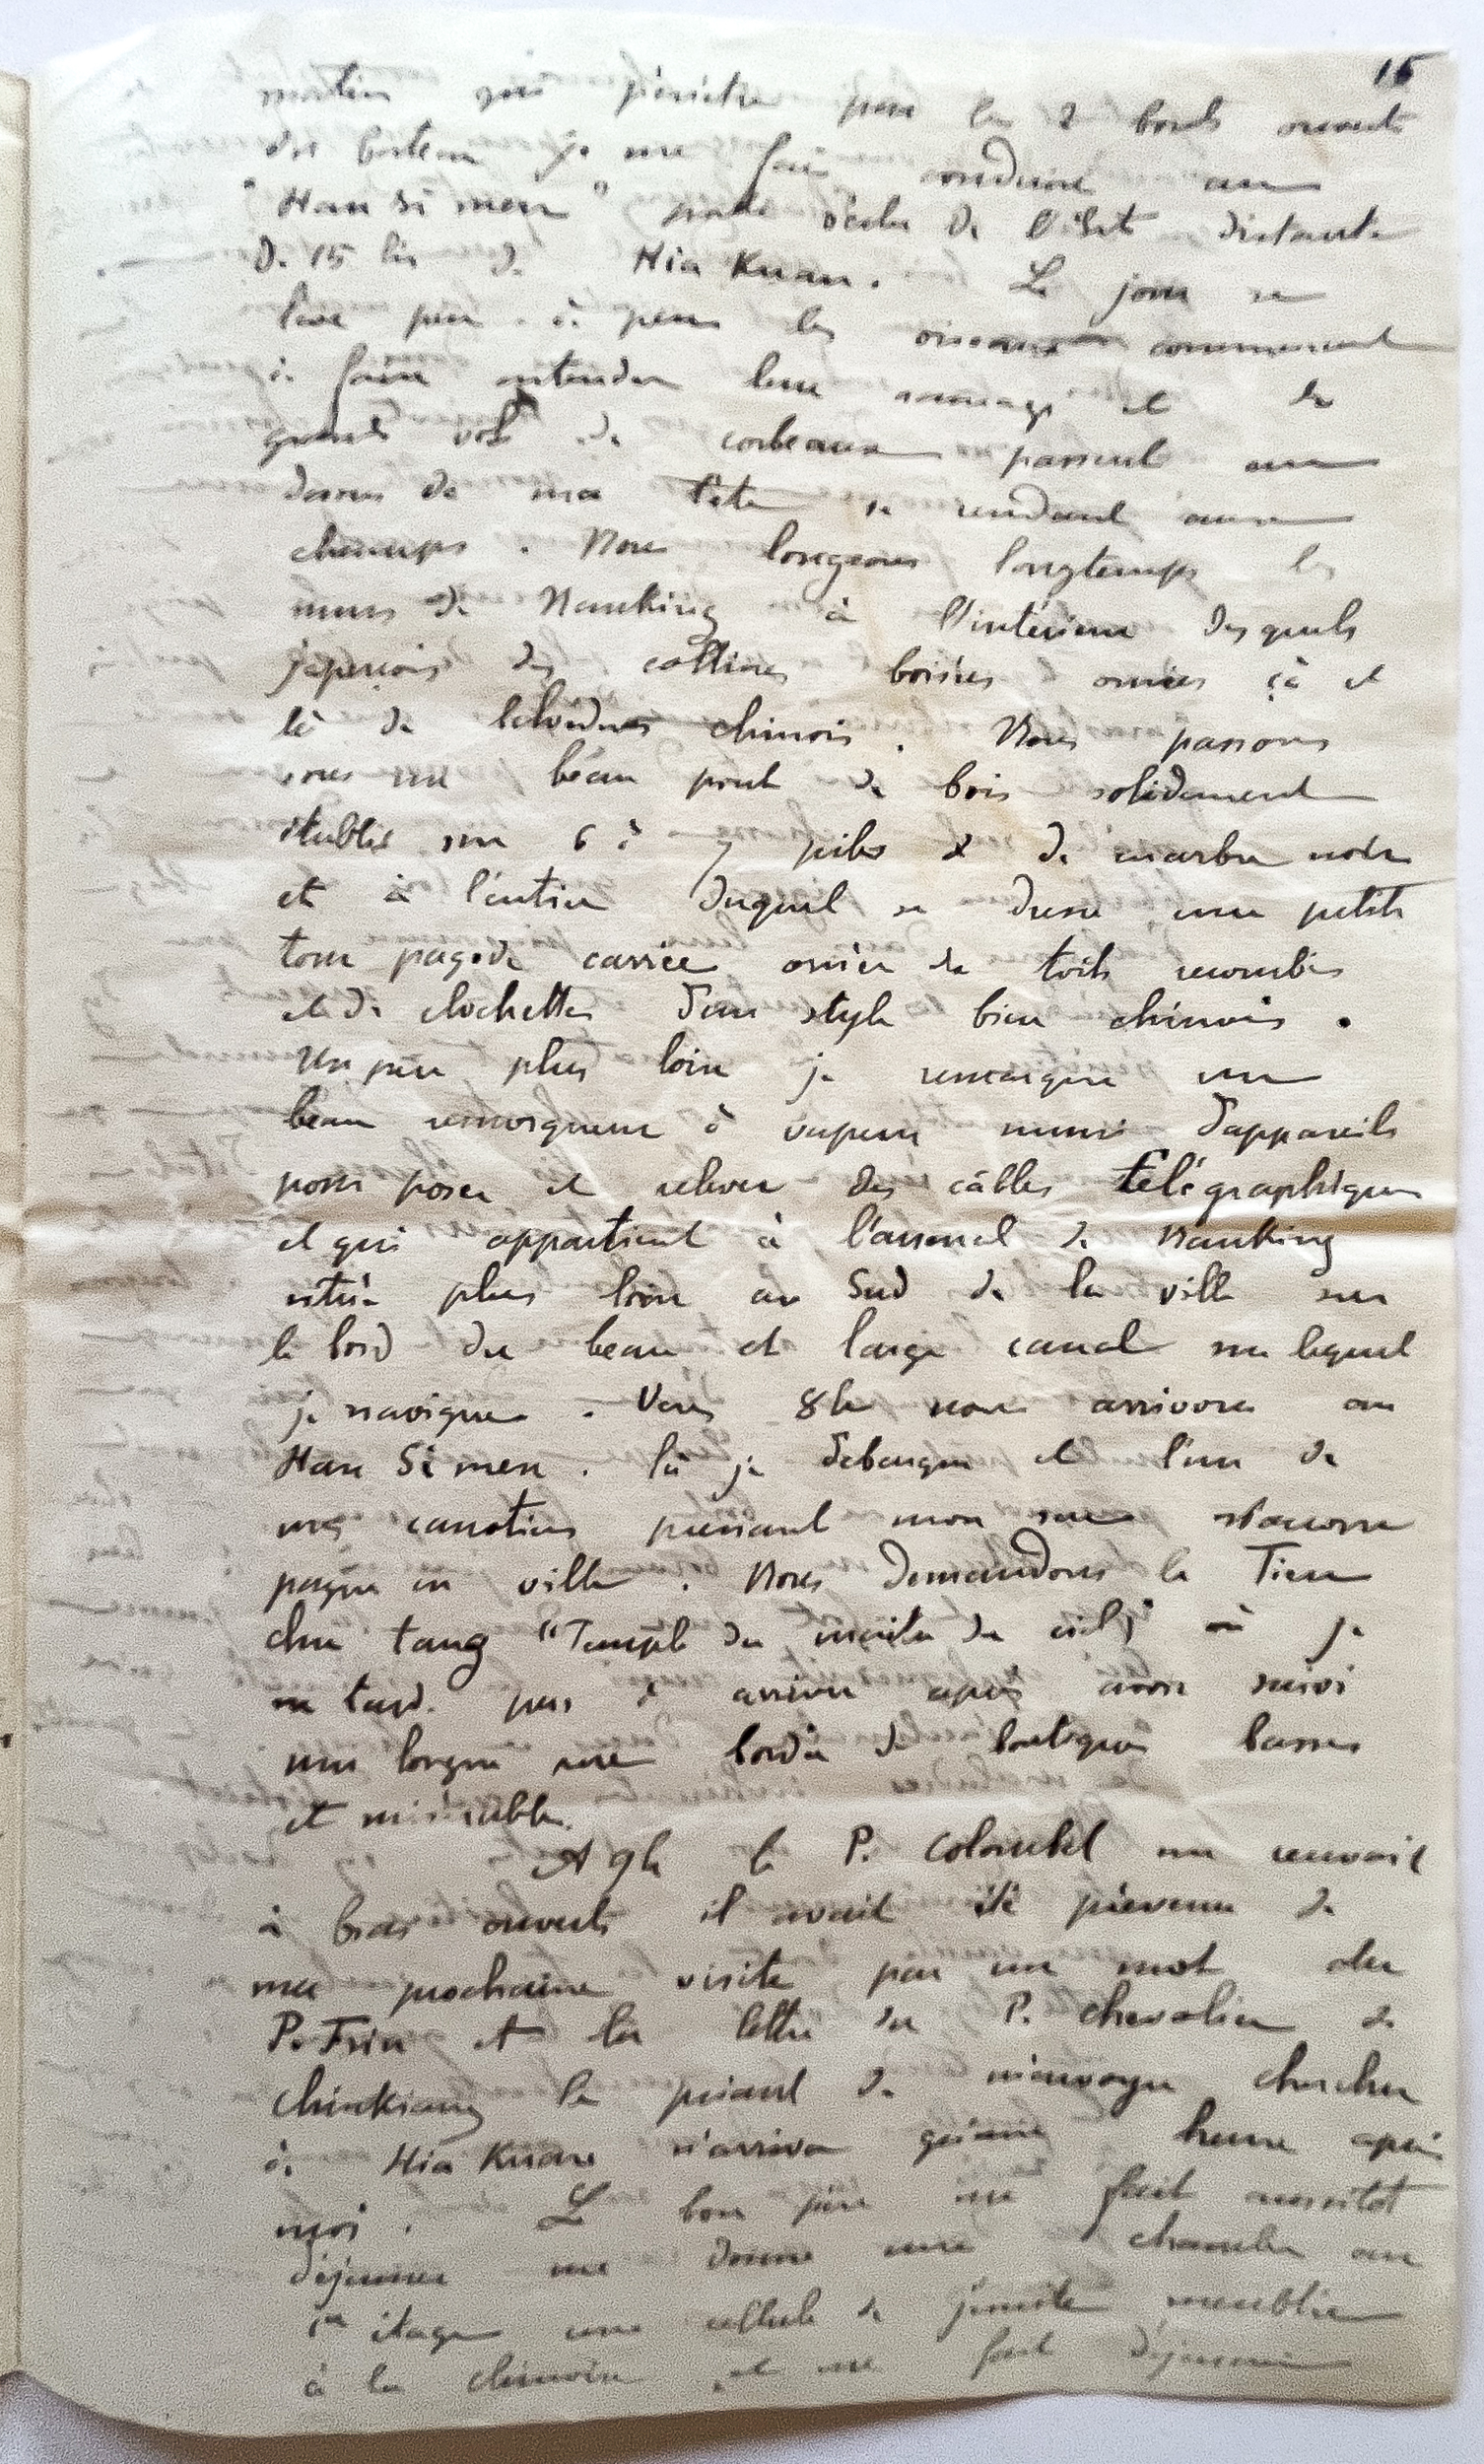 15
matin qui pénètre par les 2 bouts ouverts
du bateau je me fais conduire au
"Han Si men" porte de l'Est distante
de 15 lis de Hia Kuan. Le jour se
lève peu à peu les oiseaux commencent
à faire entendre leur ramage et de
grands vols de corbeaux passent au
dessus de ma tête se rendant aux
champs. Nous longeons longtemps les
murs de Nanking à l'intérieur desquels
j'aperçois des collines boisées ornées çà et
là de belvédères chinois. Nous passons
sous un beau pont de bois solidement
établi sur 6 à 7 piles de marbre noir
et à l'entrée duquel se dresse une petite
tour pagode carrée ornée de toits recourbés
et de clochettes d'un style bien chinois.
Un peu plus loin je remarque un
beau remorqueur à vapeur muni d'appareils
pour poser et relever des câbles télégraphiques
et qui appartient à l'arsenal de Nanking
situé plus loin au Sud de la ville sur
le bord du beau et large canal sur lequel
je navigue. Vers 8h nous arrivons au
Han Si men. là je débarque et l'un de
mes canotiers prenant mon sac m'accom
pagne en ville. Nous demandons le Tien
chu tang "Temple du maître du ciel" où je
ne tarde pas à arriver après avoir suivi
une longue rue bordée de boutiques basses
et misérables.
A 9h le P. Colombel me recevait
à bras ouverts il avait été prévenu de
ma prochaine visite par un mot du
P. Frin et la lettre du P. Chevalier de
Chinkiang le priant de m'envoyer chercher
à Hia Kuan n'arriva qu'une heure après
moi. Le bon père me fait aussitôt
déjeuner me donne une chambre au
1er étage une cellule de jésuite meublée
à la chinoise et me fait déjeuner